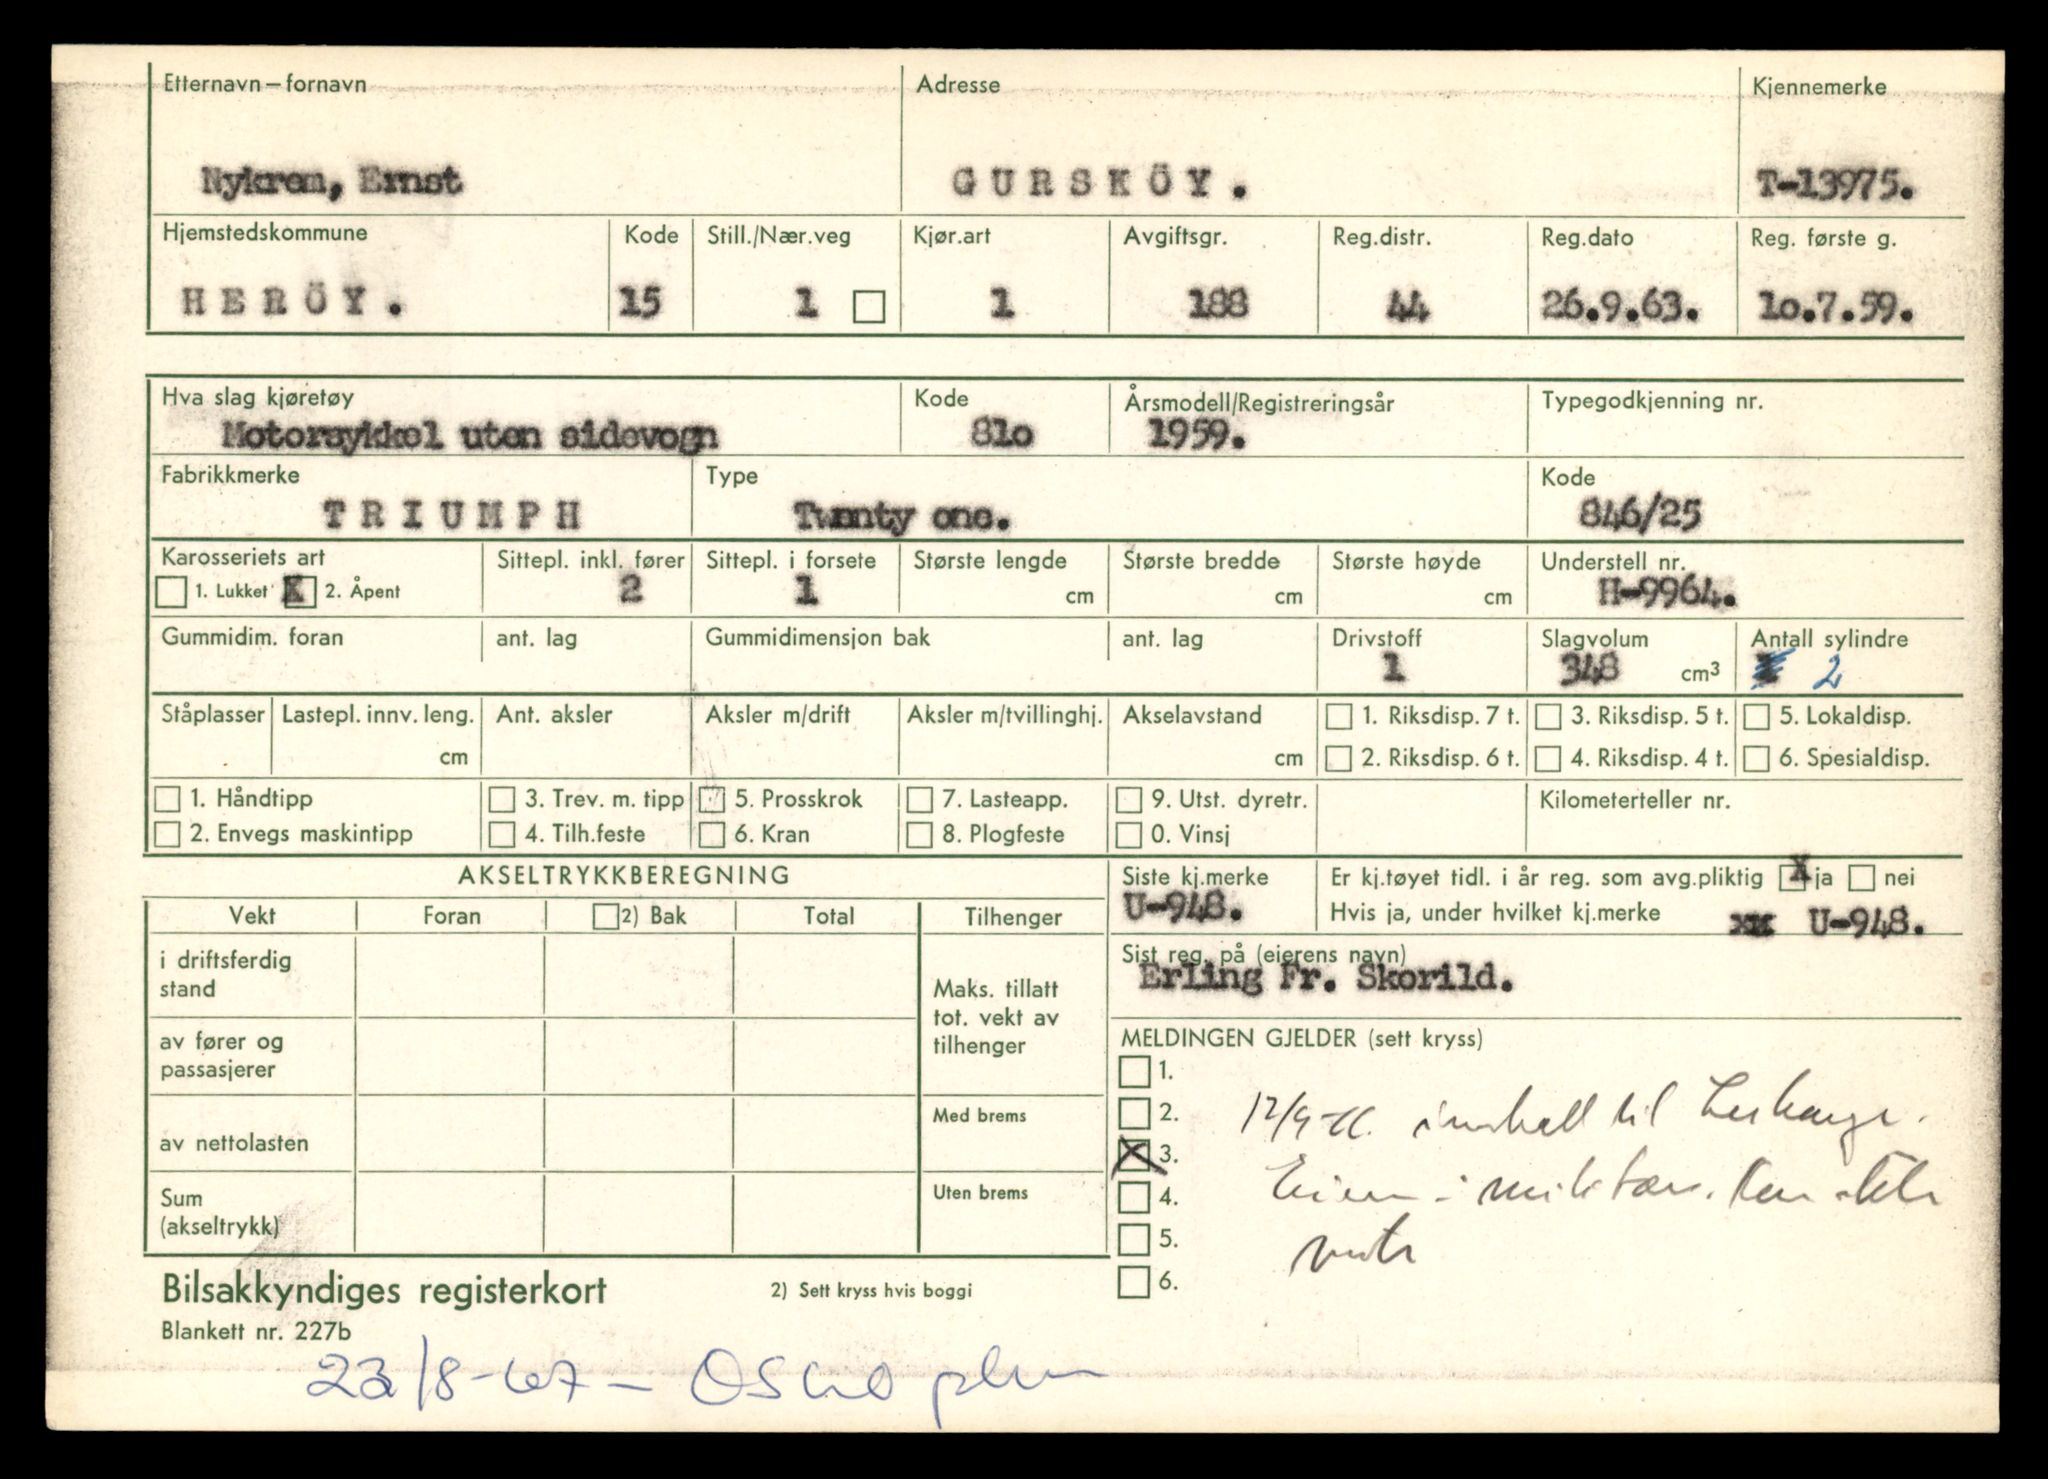 Etternavn – fornavn Adresse Kjennemerke
Nykrem, Ernst GURSKÖY. T-13975.
Hjemstedskommune Kode Still./Nær.veg Kjør.art Avgiftsgr. Reg.distr. Reg.dato Reg. første g.
HERÖY. 15 1 1 188 44 26.9.63. 1o.7.59.
Hva slag kjøretøy Kode Årsmodell/Registreringsår Typegodkjenning nr.
Motorsykkel uten sidevogn 81o 1959.
Fabrikkmerke Type Kode
TRIUMPH Twenty one. 846/25
Karosseriets art Sittepl. inkl. fører Sittepl. i forsete Største lengde Største bredde Største høyde Understell nr.
1. Lukket X 2. Åpent 2 1 cm cm cm H-9964.
Gummidim. foran ant. lag Gummidimensjon bak ant. lag Drivstoff Slagvolum Antall sylindre
1 348 cm³ 2
Ståplasser Lastepl. innv. leng. Ant. aksler Aksler m/drift Aksler m/tvillinghj. Akselavstand 1. Riksdisp. 7 t. 3. Riksdisp. 5 t. 5. Lokaldisp.
cm cm 2. Riksdisp. 6 t. 4. Riksdisp. 4 t. 6. Spesialdisp.
1. Håndtipp 3. Trev. m. tipp 5. Prosskrok 7. Lasteapp. 9. Utst. dyretr. Kilometerteller nr.
2. Envegs maskintipp 4. Tilh.feste 6. Kran 8. Plogfeste 0. Vinsj
AKSELTRYKKBEREGNING Siste kj.merke Er kj.tøyet tidl. i år reg. som avg.pliktig X ja nei
Vekt Foran 2) Bak Total Tilhenger U-948. Hvis ja, under hvilket kj.merke U-948.
i driftsferdig stand Sist reg. på (eierens navn)
Maks. tillatt tot. vekt av tilhenger Erling Fr. Skorild.
av fører og passasjerer MELDINGEN GJELDER (sett kryss)
1.
av nettolasten Med brems 2. 12/9-66. til
X 3.
Sum (akseltrykk) Uten brems 4.
5.
6.
Bilsakkyndiges registerkort 2) Sett kryss hvis boggi
Blankett nr. 227b
23/8-67 – Oslo